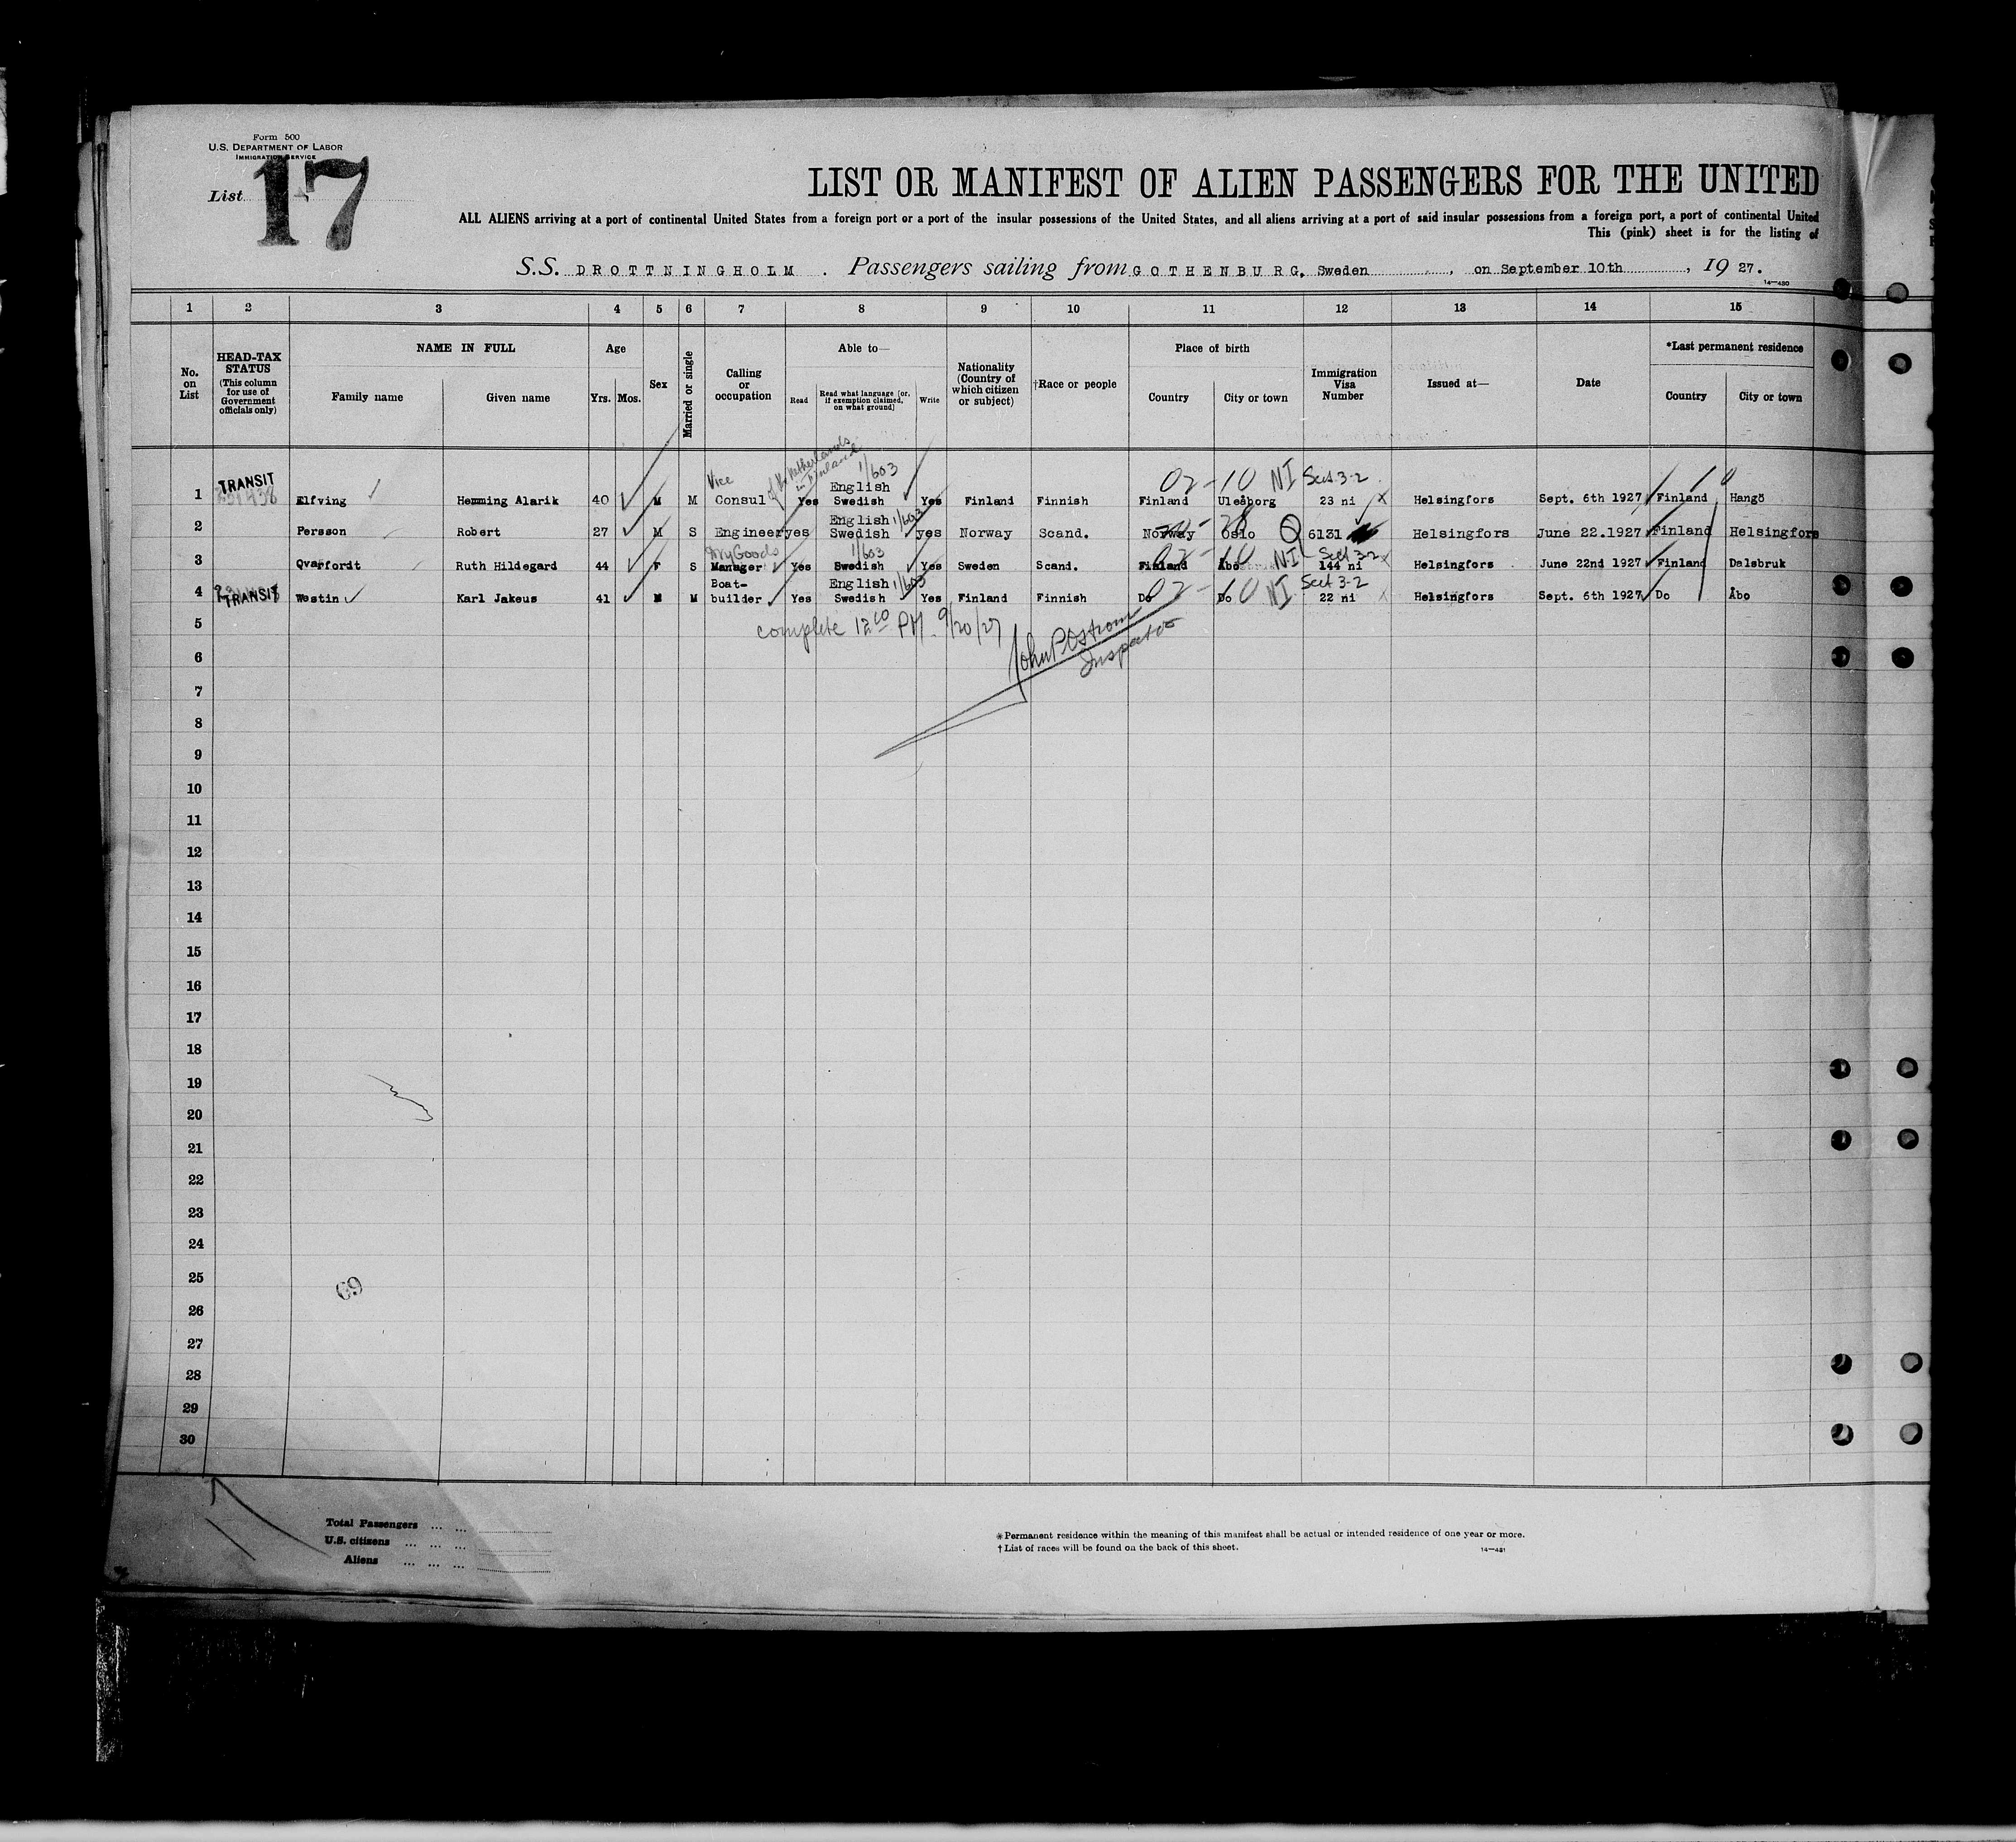 Form 500
U.S. DEPARTMENT OF LABOR
IMMIGRATION SERVICE
List 17
LIST OR MANIFEST OF ALIEN PASSENGERS FOR THE UNITED
ALL ALIENS arriving at a port of continental United States from a foreign port or a port of the insular possessions of the United States, and all aliens arriving at a port of said insular possessions from a foreign port, a port of continental United
This (pink) sheet is for the listing of
S.S. DROTTNINGHOLM. Passengers sailing from GOTHENBURG, Sweden, on September 10th, 1927.
14—480
1 2 3 4 5 6 7 8 9 10 11 12 13 14 15
No. on List HEAD-TAX STATUS (This column for use of Government officials only) NAME IN FULL Family name Given name Age Yrs. Mos. Sex Married or single Calling or occupation Able to— Read Read what language (or, if exemption claimed, on what ground) Write Nationality (Country of which citizen or subject) †Race or people Place of birth Country City or town Immigration Visa Number Issued at— Date *Last permanent residence Country City or town
TRANSIT Vice of the Netherlands in Finland 1/603 English 02-10 NI Sect 3-2 10
1 Elfving Hemming Alarik 40 M M Consul Yes Swedish Yes Finland Finnish Finland Uleåborg 23 ni Helsingfors Sept. 6th 1927 Finland Hangö
English 1/603
2 Persson Robert 27 M S Engineer yes Swedish yes Norway Scand. Norway Oslo Q 6131 Helsingfors June 22.1927 Finland Helsingfors
Dry Goods 1/603 02-10 NI Sect 3-2
3 Qvarfordt Ruth Hildegard 44 F S Manager Yes Swedish Yes Sweden Scand. Finland Åbo 144 ni Helsingfors June 22nd 1927 Finland Dalsbruk
TRANSIT Boat- English 1/603 02-10 NI Sect 3-2
4 Westin Karl Jakeus 41 M M builder Yes Swedish Yes Finland Finnish Do Do 22 ni Helsingfors Sept. 6th 1927 Do Åbo
5
complete 12:00 PM. 9/20/27
John P Ostrom
Inspector
6
7
8
9
10
11
12
13
14
15
16
17
18
19
20
21
22
23
24
25
69
26
27
28
29
30
Total Passengers ... ...
U.S. citizens ... ... ...
Aliens ... ... ...
*Permanent residence within the meaning of this manifest shall be actual or intended residence of one year or more.
†List of races will be found on the back of this sheet.
14—481